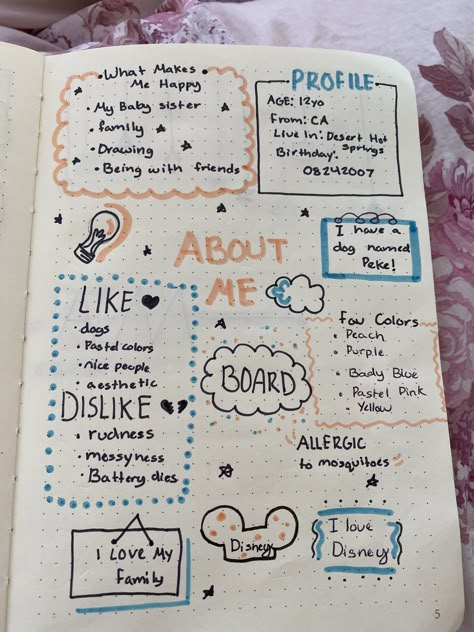 What Makes
Me Happy
• My Baby sister
• family
• Drawing
• Being with friends
PROFILE
AGE: 12yo
From: CA
Live in: Desert Hot
Springs
Birthday:
08242007
ABOUT
ME
I have a
dog named
Peke!
LIKE
• dogs
• Pastel colors
• nice people
• aesthetic
DISLIKE
• rudness
• messyness
• Battery dies
BOARD
fav Colors
• Peach
• Purple
• Baby Blue
• Pastel Pink
• Yellow
ALLERGIC
to mosquitoes
I Love My
Family
Disney
I love
Disney
5